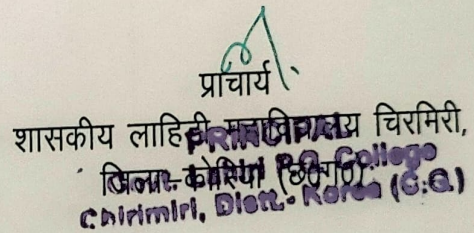 प्राचार्य
शासकीय लाहिड़ी महाविद्यालय चिरमिरी,
जिला-कोरिया (छ०ग०)
PRINCIPAL
Govt. Lahiri P.G. College
Chirimiri, Distt.- Korea (C.G.)